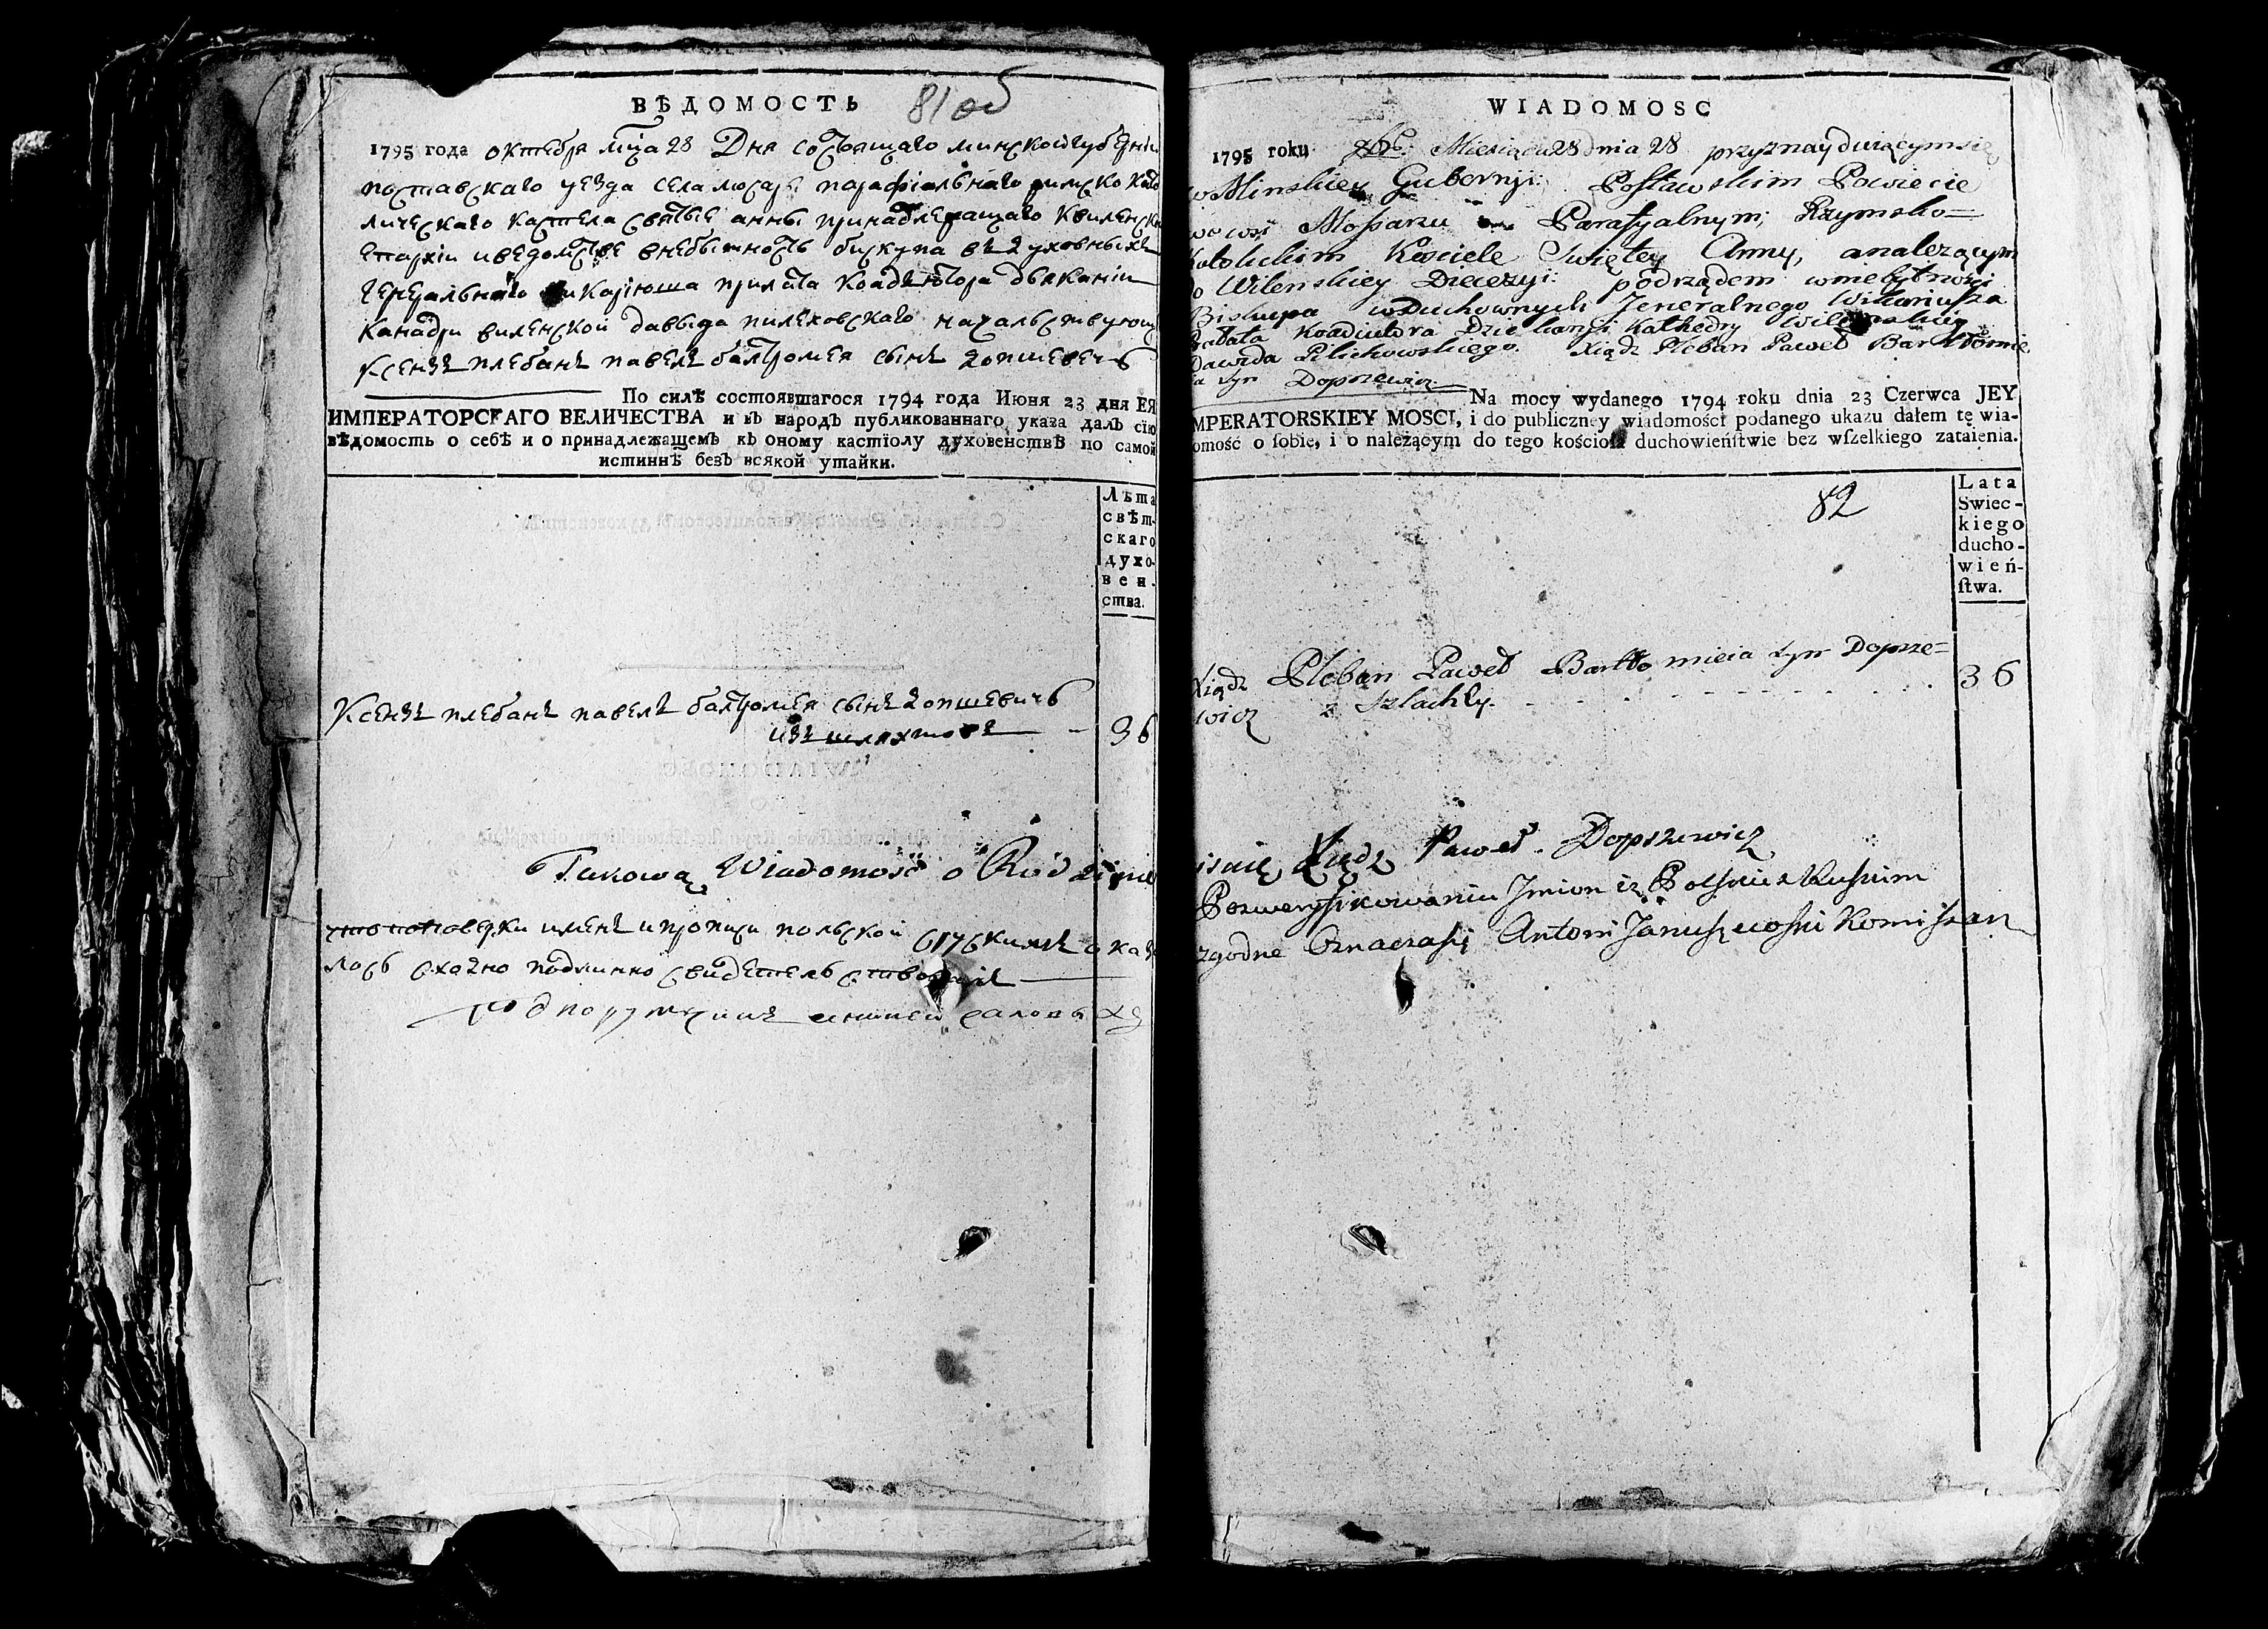 ВѢДОМОСТЬ 81 об
1795 года октебря мца 28 Дня состоящаго минской губерніи
поставскаго уезда села мосаря парафіальнаго римско като
лическаго кастела святые анны принадлежащаго квиленско
епархіи иведомстве внебытность бискупа въ духовныхъ
генеральнаго викаріюша прилата коадъютора дзяканіи
канадри виленской давыда пилховскаго началствующ
ксензъ плебанъ павелъ балтромея сынъ допшевечъ
По силѣ состоявшагося 1794 года Июня 23 дня ЕЯ
ИМПЕРАТОРСГАГО ВЕЛИЧЕСТВА и въ народъ публикованнаго указа далъ сїю
вѣдомость о себѣ и о принадлежащемъ къ оному кастїолу духовенствѣ по самой
истиннѣ безъ всякой утайки.
Лѣта
свѣт-
скаго
духо-
вен-
ства.
Ксензъ плебанъ павелъ балтромея сынъ допшевичъ
изъ шляхтовъ - 36
Takową Wiadomość o Rodzinie
поверки именъ ипрописи польской сруским ока
лось схачно подлинно свидетельствовалъ
WIADOMOSC
1795 roku 8bra Miesiąca 28 dnia 28 przyznayduiącym się
w Minskiey Gubernji: Postawskim Powiecie
we wsi Mosarzu Parafyalnym; Rzymsko=
Katolickim Kościele Swiętey Anny, a należącym
do Wilenskiey Diecezyi: pod rządem w niebytności
Biskupa w Duchownych Jeneralnego Wikariusza
Prałata Koadiutora Dziekanji Kathedry Wilenskiey
Dawida Pilichowskiego. Xiądz Pleban Paweł Bartłomie
ia syn Dopszewicz
Na mocy wydanego 1794 roku dnia 23 Czerwca JEY
MPERATORSKIEY MOSCI, i do publiczney wiadomości podanego ukazu dałem tę wia-
omość o sobie, i o należącym do tego kościoła duchowieństwie bez wszelkiego zataienia.
82
Lata
Swiec-
kiego
ducho-
wień-
stwa.
Xiądz Pleban Paweł Bartłomieia syn Dopsze=
wicz z Szlachty. 36
isuię Xiądz Paweł Dopszewicz
Po zweryfikowaniu Jmion iz Polskie z Ruskim
zgodne Oznaczasię Antoni Januszewski Komisarz